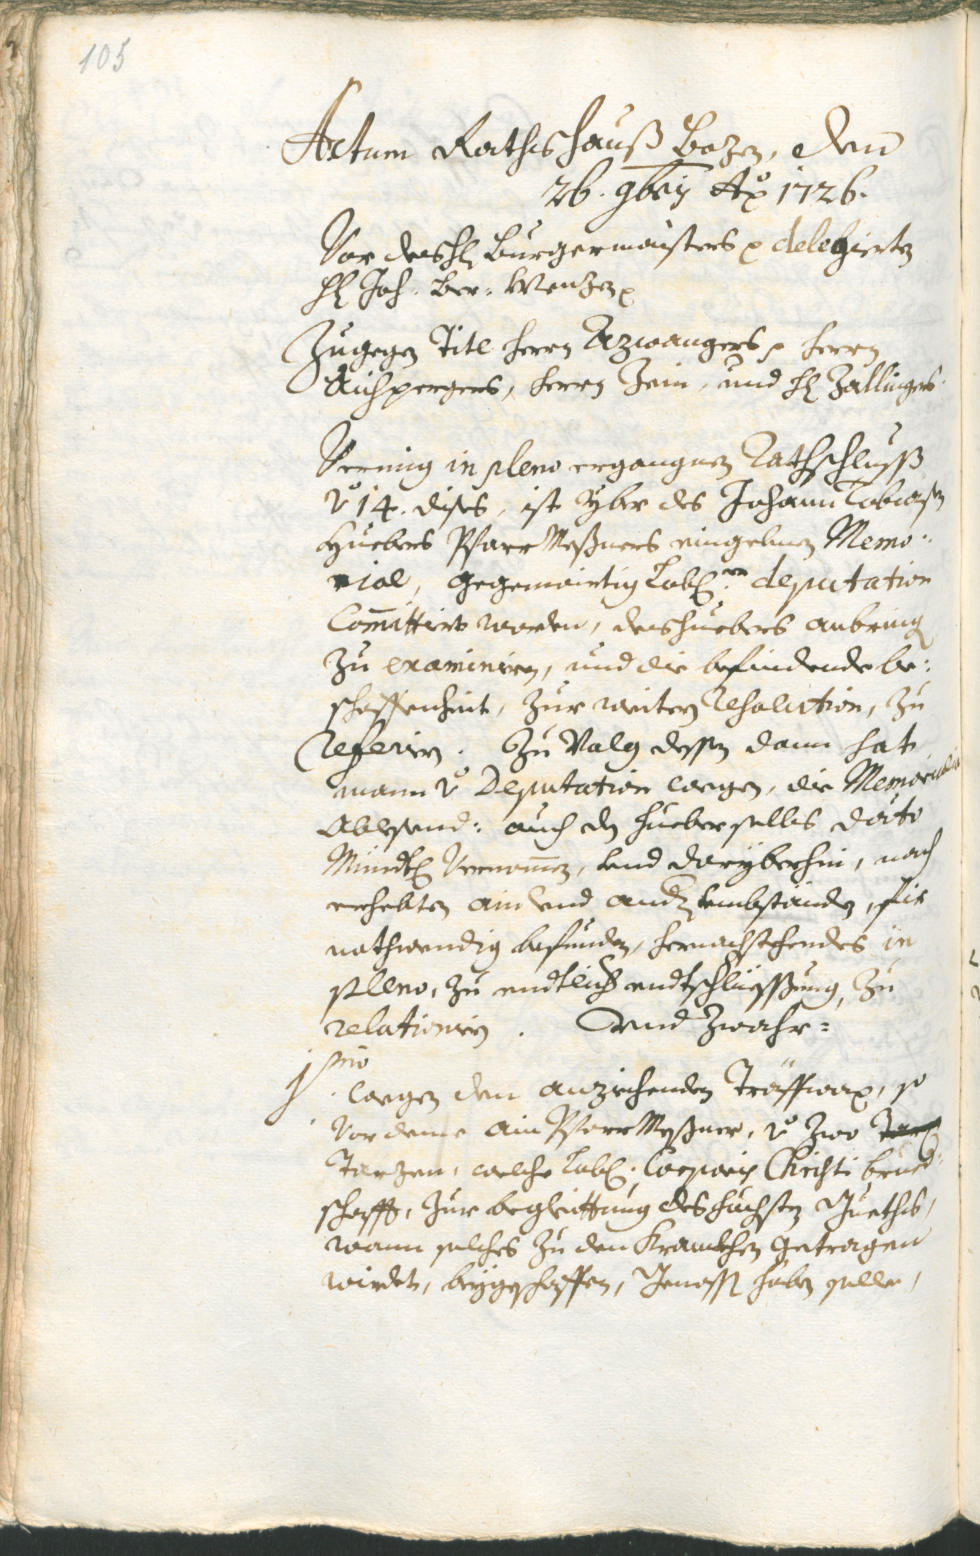 105
Actum Rathshauß Bozen, den
26. 9bris Ao 1726.
Vor des H Burgermaisters p delegierten
H Joh. Bar. Wenzen p
Zugegen Titl Herrn Azwangers p Herrn
Aichpergers, Herrn Zein, und H Zallingers.
Vermig in pleno ergangnen Rathschluss
v 14. dises, ist yber des Johann Tobiasen
Huebers Pfarr Mesßners eingeben Memo:
rial, gegenwirtig Löbl. deputation
Committirt worden, des Huebers anbringen
zu examiniren, und die befindende be:
schaffenheit, zur weitern Resolution, zu
Referirn. Zu Volg dessen dann hat
mann v Deputation wegen, die Memorialia
Ablesend: auch den Hueber selbs dato
Mündl Vernomen, und daryberhin, nach
erhebten ain und andern umbständen, für
nothwendig befunden, hernachstehendes in
pleno, zu endtlich endtschlüessung, zu
relationirn. Und zwahr:
1mo. wegen den anzichenden Träffwax, so
Vordeme ain Pfarr Mesßner, v zwo
Tarzen, welche Löbl. Corporis Christi brued:
schafft, zur begleittung des höchsten Gueths,
wann solches zu den Krankhen getragen
wirdet, beygeschaffen, Genossen haben solle,